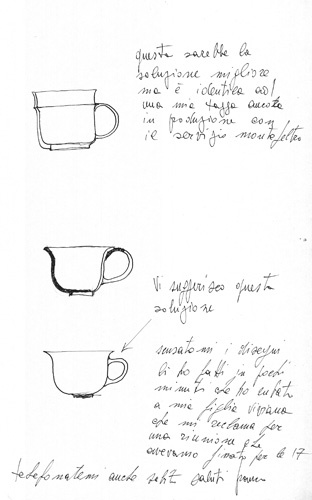 questa sarebbe la
soluzione migliore
ma è identica ad
una mia tazza ancora
in produzione con
il servizio montefeltro
Vi suggerisco questa
soluzione
scusatemi i disegni
li ho fatti in pochi
minuti che ho rubato
a mia figlia viviana
che mi reclama per
una riunione che
avevamo fissato per le 17
telefonatemi anche saluti